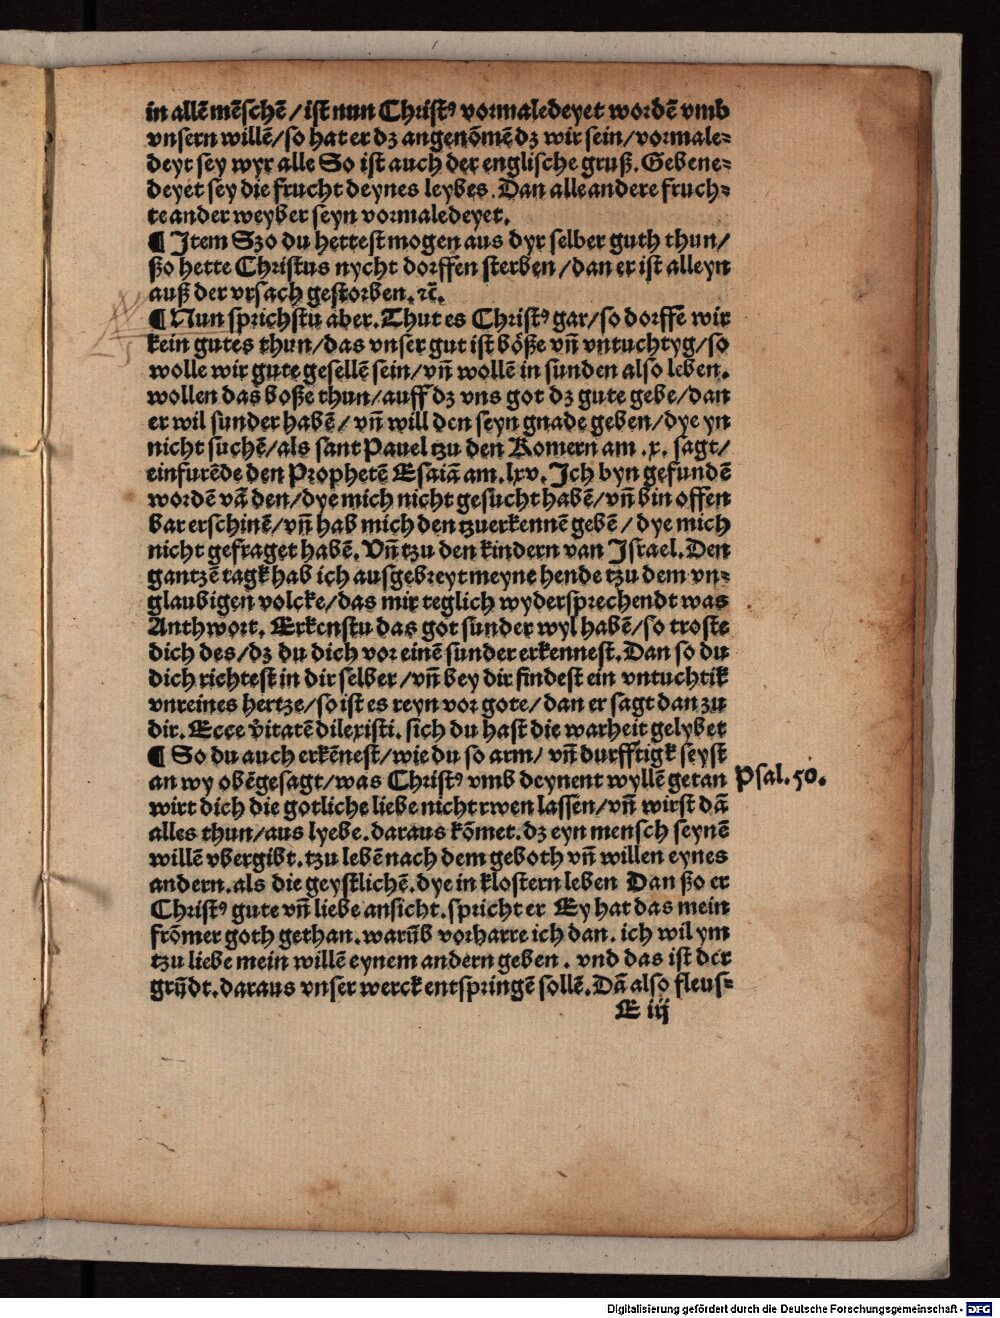 in allẽ mẽschẽ / ist nun Christꝰ vormaledeyet wordẽ vmb
vnsern willẽ / so hat er dz angenõmẽ dz wir sein / vormale-
deyt sey wyr alle So ist auch der englische gruß. Gebene-
deyet sey die frucht deynes leybes. Dan alle andere fruch-
te ander weyber seyn vormaledeyet.
¶ Jtem Szo du hettest mogen aus dyr selber guth thun /
ßo hette Christus nycht dorffen sterben / dan er ist alleyn
auß der vrsach gestorben. ⁊c̃.
¶ Nun sprichstu aber. Thut es Christꝰ gar / so dorffẽ wir
kein gutes thun / das vnser gut ist böße vñ vntuchtyg / so
wolle wir gute gesellẽ sein / vñ wollẽ in sunden also leben.
wollen das boße thun / auff dz vns got dz gute gebe / dan
er wil sunder habẽ / vñ will den seyn gnade geben / dye yn
nicht suchẽ / als sant Pauel tzu den Romern am .x. sagt /
einfurẽde den Prophetẽ Esaiã am .lxv. Jch byn gefundẽ
wordẽ vã den / dye mich nicht gesucht habẽ / vñ bin offen
bar erschinẽ / vñ hab mich den tzuerkennẽ gebẽ / dye mich
nicht gefraget habẽ. Vñ tzu den kindern van Jsrael. Den
gantzẽ tagk hab ich ausgebreyt meyne hende tzu dem vn-
glaubigen volcke / das mir teglich wydersprechendt was
Anthwort. Erkenstu das got sunder wyl habẽ / so troste
dich des / dz du dich vor einẽ sunder erkennest. Dan so du
dich richtest in dir selber / vñ bey dir findest ein vntuchtik
vnreines hertze / so ist es reyn vor gote / dan er sagt dan zu
dir. Ecce ṽitatẽ dilexisti. sich du hast die warheit gelybet
¶ So du auch erkẽnest / wie du so arm / vñ durfftigk seyst
an wy obẽgesagt / was Christꝰ vmb deynent wyllẽ getan
Psal. 50.
wirt dich die gotliche liebe nicht rwen lassen / vñ wirst dã
alles thun / aus lyebe. daraus kõmet. dz eyn mensch seynẽ
willẽ vbergibt. tzu lebẽ nach dem geboth vñ willen eynes
andern. als die geystlichẽ. dye in klostern leben Dan ßo er
Christꝰ gute vñ liebe ansicht. spricht er Ey hat das mein
frõmer goth gethan. warũb vorharre ich dan. ich wil ym
tzu liebe mein willẽ eynem andern geben. vnd das ist der
grũdt. daraus vnser werck entspringẽ sollẽ. Dã also fleus-
E iij
Digitalisierung gefördert durch die Deutsche Forschungsgemeinschaft - DFG